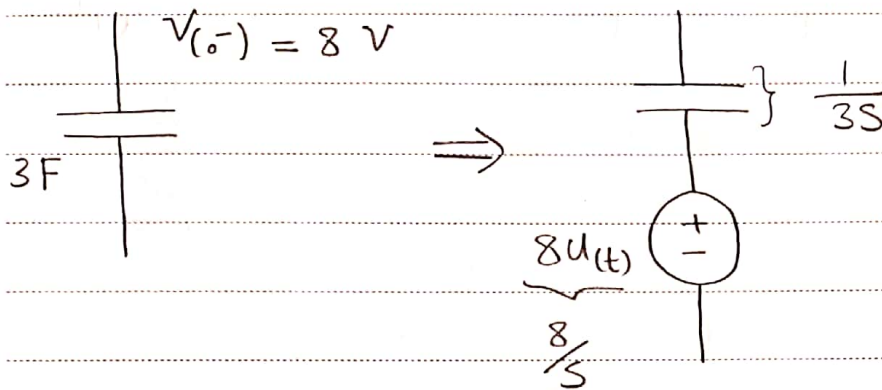 V(0⁻) = 8 V
3F
⇒
} 1/3S
+
−
8u(t)
8/S